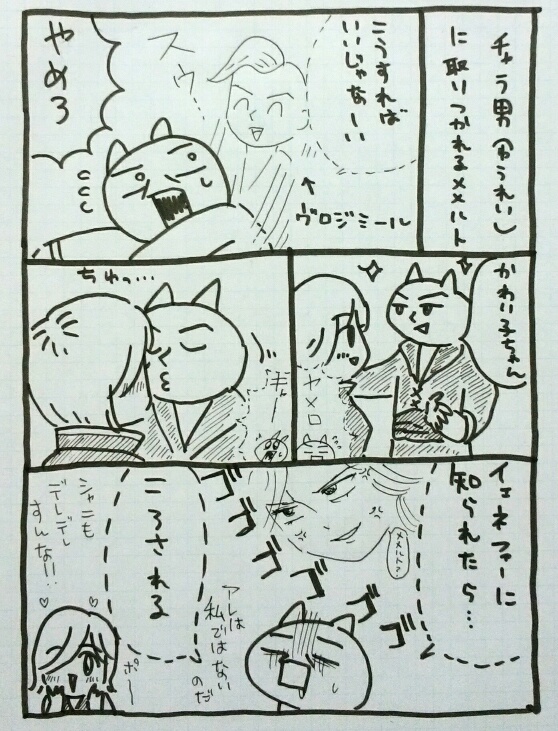 チャラ男(ゆうれい)
に取りつかれるメメルト
こうすれば
いいじゃなーい
スゥ
↑
ヴロジミール
やめろ
かわい子ちゃん
ヤメロ
ちゅっ…
ギャー
イェネファーに
知られたら…
メメルト?
ゴゴゴゴゴゴゴ
アレは
私ではない
のだ
ころされる
シャニも
デレデレ
すんな!!
ポ〜